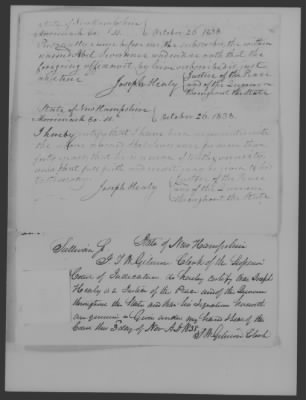 State of New Hampshire
Merrimack Co. ss. October 26 1838.
Personally came before me, the subscriber the within
named Abel Severance and made oath that the
foregoing affidavit by him subscribed is just
and true
Joseph Healy Justice of the Peace
and of the Quorum
throughout the State
State of New Hampshire
Merrimack Co. ss. October 26. 1838.
I hereby certify that I have been acquainted with
the above named Abel Severance for more than
years that he is a man of truth
and that full faith and credit may be given to his
testimony Justice of the Peace
Joseph Healy and of the Quorum
throughout the State
Sullivan ss. State of New Hampshire
I, J. W. Gilman Clerk of the Superior
Court of Judicature do hereby certify that Joseph
Healy is a Justice of the Peace and of the Quorum
throughout the State and that his signature
are genuine. Given under my hand & seal of the
Court this 3 day of Nov. A.D. 1838.
J. W. Gilman Clerk